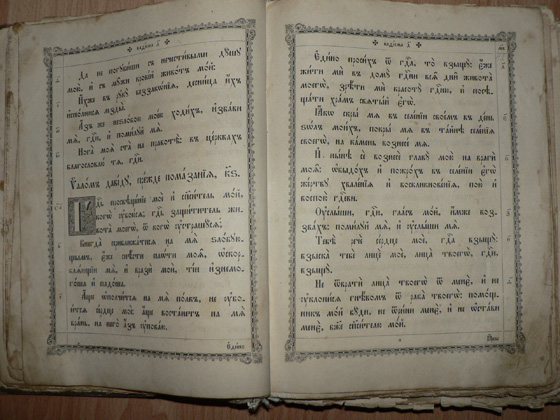 каѳісма г҃
Да не погꙋбиши съ нечестивыми дꙋшꙋ
мою̀, и҆ съ мꙋжи кровїй живо́тъ мо́й:
И҆́хже въ рꙋкꙋ̀ беззакѡ́нїѧ, десни́ца и҆́хъ
и҆спо́лнисѧ мзды̀.
А҆́зъ же неѕло́бою мое́ю ходи́хъ, и҆зба́ви
мѧ̀, гдⷭ҇и, и҆ поми́лꙋй мѧ̀.
Нога̀ моѧ̀ ста̀ на правотѣ̀: въ цр҃квахъ
благословлю̀ тѧ̀, гдⷭ҇и.
Ѱало́мъ даві́дꙋ, пре́жде пома́занїѧ, к҃ѕ.
Гдⷭ҇ь просвѣще́нїе моѐ и҆ сп҃си́тель мо́й,
когѡ̀ ᲂу҆бою́сѧ; гдⷭ҇ь защи́титель жи-
вота̀ моегѡ̀, ѿ когѡ̀ ᲂу҆страшꙋ́сѧ;
Внегда̀ приближа́тисѧ на мѧ̀ ѕло́бꙋю-
щымъ, є҆́же снѣ́сти плѡ́ти моѧ̑, ѡ҆скор-
блѧ́ющїи мѧ̀, и҆ вразѝ моѝ, ті́и и҆знемо-
го́ша и҆ падо́ша.
А҆́ще ѡ҆полчи́тсѧ на мѧ̀ по́лкъ, не ᲂу҆бо-
и́тсѧ се́рдце моѐ: а҆́ще воста́нетъ на мѧ̀
бра́нь, на него̀ а҆́зъ ᲂу҆пова́ю.
Є҆ди́но
каѳісма г҃
Є҆ди́но проси́хъ ѿ гдⷭ҇а, то̀ взыщꙋ̀: є҆́же
жи́ти мѝ въ домꙋ̀ гдⷭ҇ни всѧ̑ дни̑ живота̀
моегѡ̀, зрѣ́ти мѝ красотꙋ̀ гдⷭ҇ню, и҆ посѣ-
ща́ти хра́мъ ст҃ы́й є҆гѡ̀.
Ꙗ҆́кѡ скры̀ мѧ̀ въ селе́нїи свое́мъ въ де́нь
ѕѡ́лъ мои́хъ, покры́ мѧ въ та́йнѣ селе́нїѧ
своегѡ̀, на ка́мень вознесе́ мѧ.
И҆ нн҃ѣ сѐ вознесѐ главꙋ̀ мою̀ на врагѝ
моѧ̑: ѡ҆быдо́хъ и҆ пожро́хъ въ селе́нїи є҆гѡ̀
же́ртвꙋ хвале́нїѧ и҆ восклицнове́нїѧ, пою̀ и҆
воспою̀ гдⷭ҇еви.
Оу҆слы́ши, гдⷭ҇и, гла́съ мо́й, и҆́мже воз-
зва́хъ: поми́лꙋй мѧ̀, и҆ ᲂу҆слы́ши мѧ̀.
Тебѣ̀ речѐ се́рдце моѐ, гдⷭ҇а взыщꙋ̀:
взыска̀ тебѐ лицѐ моѐ, лица̀ твоегѡ̀, гдⷭ҇и,
взыщꙋ̀.
Не ѿвратѝ лица̀ твоегѡ̀ ѿ менє̀, и҆ не
ᲂу҆клони́сѧ гнѣ́вомъ ѿ раба̀ твоегѡ̀: помо́щ-
никъ мо́й бꙋ́ди, не ѿри́ни менѐ, и҆ не ѡ҆ста́ви
менѐ, бж҃е сп҃си́телю мо́й.
Ꙗ҆́кѡ